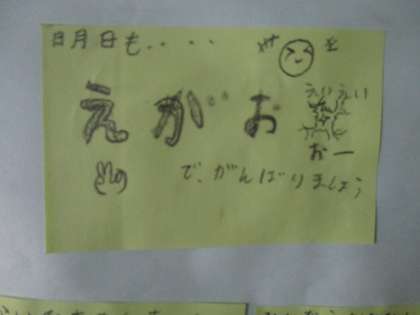 明日も・・・・
えがお
えいえい
おー
で、がんばりましょう